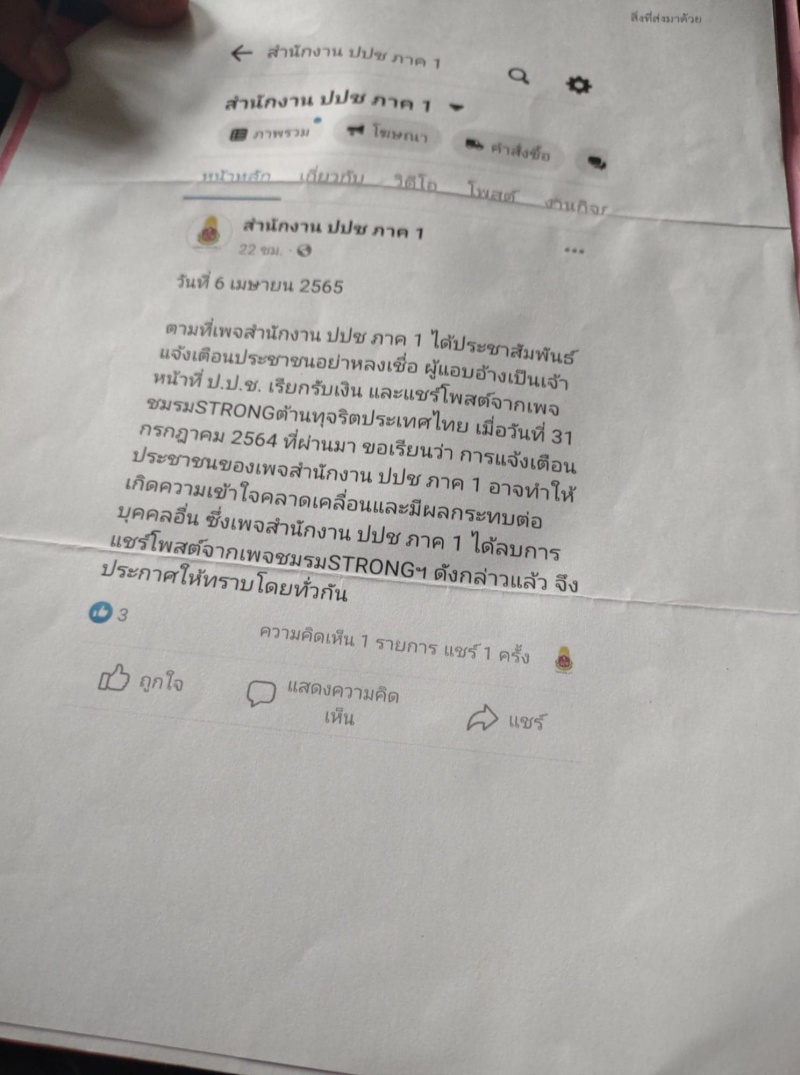 สิ่งที่ส่งมาด้วย
สำนักงาน ปปช ภาค 1
สำนักงาน ปปช ภาค 1
ภาพรวม โฆษณา คำสั่งซื้อ
หน้าหลัก เกี่ยวกับ วิดีโอ โพสต์ งานกิจก
สำนักงาน ปปช ภาค 1
22 ชม.
วันที่ 6 เมษายน 2565
ตามที่เพจสำนักงาน ปปช ภาค 1 ได้ประชาสัมพันธ์
แจ้งเตือนประชาชนอย่าหลงเชื่อ ผู้แอบอ้างเป็นเจ้า
หน้าที่ ป.ป.ช. เรียกรับเงิน และแชร์โพสต์จากเพจ
ชมรมSTRONGต้านทุจริตประเทศไทย เมื่อวันที่ 31
กรกฎาคม 2564 ที่ผ่านมา ขอเรียนว่า การแจ้งเตือน
ประชาชนของเพจสำนักงาน ปปช ภาค 1 อาจทำให้
เกิดความเข้าใจคลาดเคลื่อนและมีผลกระทบต่อ
บุคคลอื่น ซึ่งเพจสำนักงาน ปปช ภาค 1 ได้ลบการ
แชร์โพสต์จากเพจชมรมSTRONGฯ ดังกล่าวแล้ว จึง
ประกาศให้ทราบโดยทั่วกัน
3
ความคิดเห็น 1 รายการ แชร์ 1 ครั้ง
ถูกใจ แสดงความคิด
เห็น แชร์